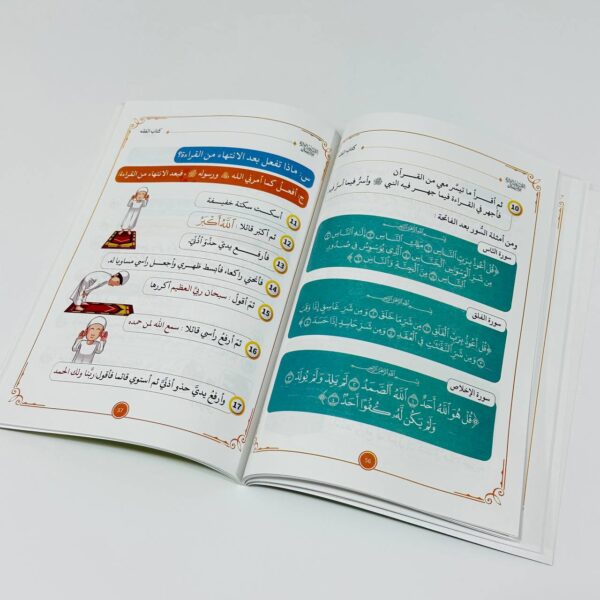 كتاب الفقه
10 ثم أقرأ ما تيسّر معي من القرآن
فأجهر في القراءة فيما جهر فيه النبي ﷺ وأسرُّ فيما أسرّ فيه
ومن أمثلة السُّور بعد الفاتحة :
سورة النّاس
﴿قُلْ أَعُوذُ بِرَبِّ النَّاسِ ۝ مَلِكِ النَّاسِ ۝ إِلَٰهِ النَّاسِ ۝
مِن شَرِّ الْوَسْوَاسِ الْخَنَّاسِ ۝ الَّذِي يُوَسْوِسُ فِي صُدُورِ
النَّاسِ ۝ مِنَ الْجِنَّةِ وَالنَّاسِ ۝﴾
سورة الفلق
﴿قُلْ أَعُوذُ بِرَبِّ الْفَلَقِ ۝ مِن شَرِّ مَا خَلَقَ ۝ وَمِن شَرِّ غَاسِقٍ إِذَا وَقَبَ
۝ وَمِن شَرِّ النَّفَّاثَاتِ فِي الْعُقَدِ ۝ وَمِن شَرِّ حَاسِدٍ إِذَا حَسَدَ ۝﴾
سورة الإخلاص
﴿قُلْ هُوَ اللَّهُ أَحَدٌ ۝ اللَّهُ الصَّمَدُ ۝ لَمْ يَلِدْ وَلَمْ يُولَدْ ۝
وَلَمْ يَكُن لَّهُ كُفُوًا أَحَدٌ ۝﴾
56
كتاب الفقه
س: ماذا تفعل بعد الانتهاء من القراءة؟
ج: أفعلُ كما أمرني الله ﷻ ورسوله ﷺ ، فبعد الانتهاء من القراءة
11 أسكت سكتة خفيفة
12 ثم أكبّر قائلا : اللَّهُ أَكْبَرُ
13 فأرفـع يديّ حذْوَ أذُنَيّ
14 فأنحَني راكعا، فأبسط ظهري وأجعل رأسي مساويا له.
15 ثمّ أقول : سبحان ربيّ العظيم أكررها
16 ثمّ أرفعُ رأسي قائلا : سمع الله لمن حمده
17 وأرفعُ يديّ حذو أذُنَيَّ ثم أستوي قائما فأقول ربَّنا ولك الحمد
57